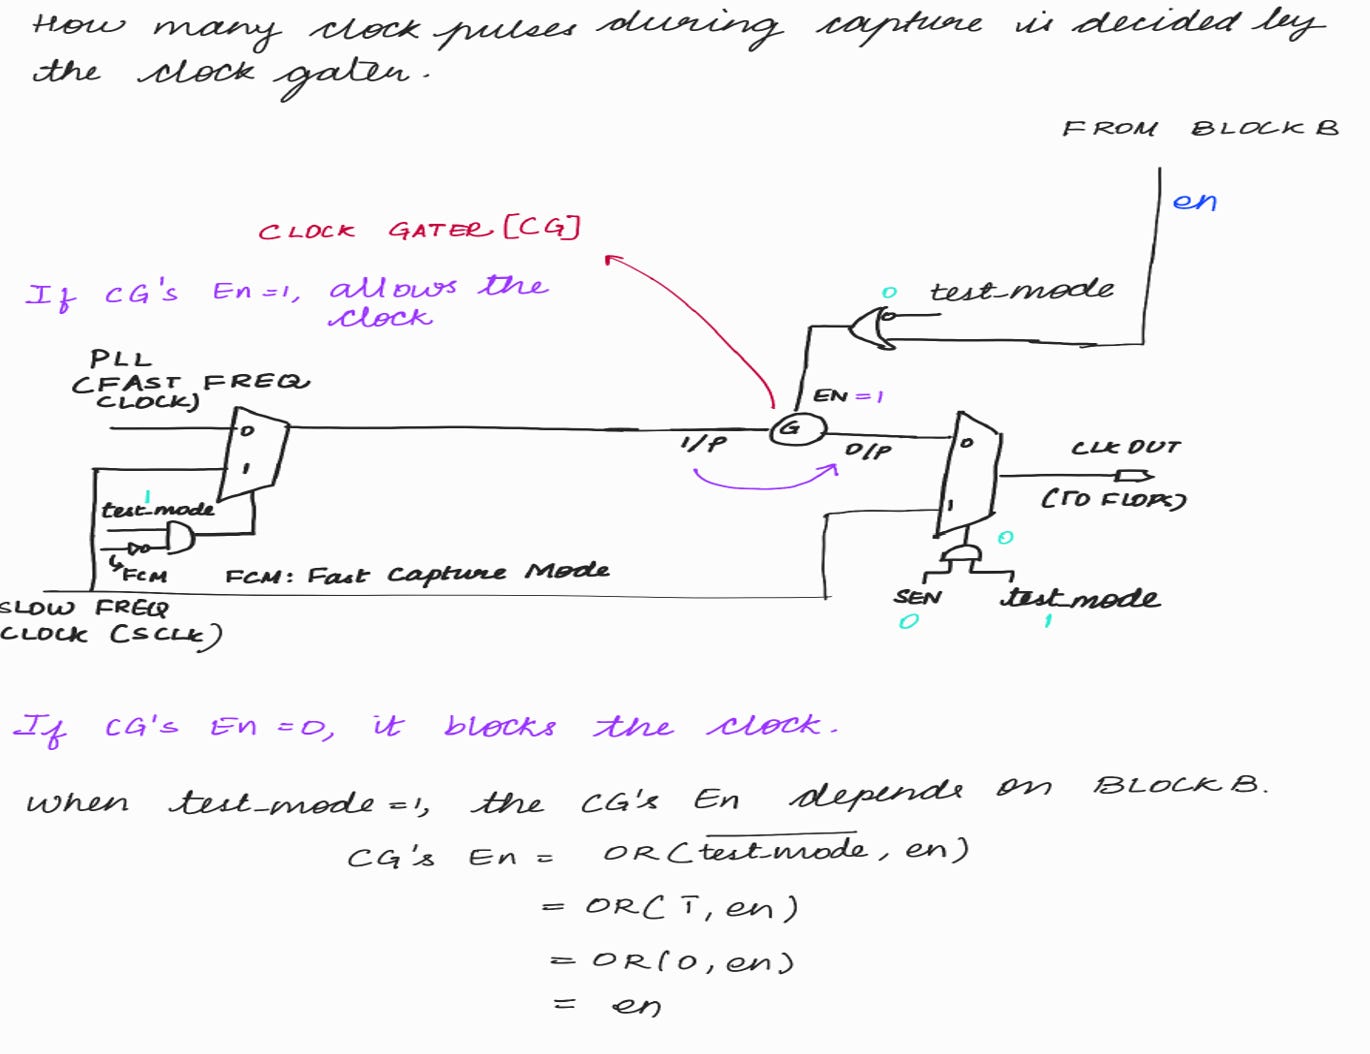 How many clock pulses during capture is decided by
the clock gater.
FROM BLOCK B
en
CLOCK GATER [CG]
If CG's En=1, allows the
clock
0 test_mode
PLL
(FAST FREQ
CLOCK)
EN =1
0
G
I/P
O/P
0
CLK OUT
(TO FLOPS)
1
1
test_mode
1
0
FCM
FCM: Fast Capture Mode
SEN
test_mode
0
1
SLOW FREQ
CLOCK (SCLK)
If CG's En =0, it blocks the clock.
When test_mode =1, the CG's En depends on BLOCK B.
CG's En = OR(t̅e̅s̅t̅_̅m̅o̅d̅e̅, en)
= OR(1̅, en)
= OR(0, en)
= en